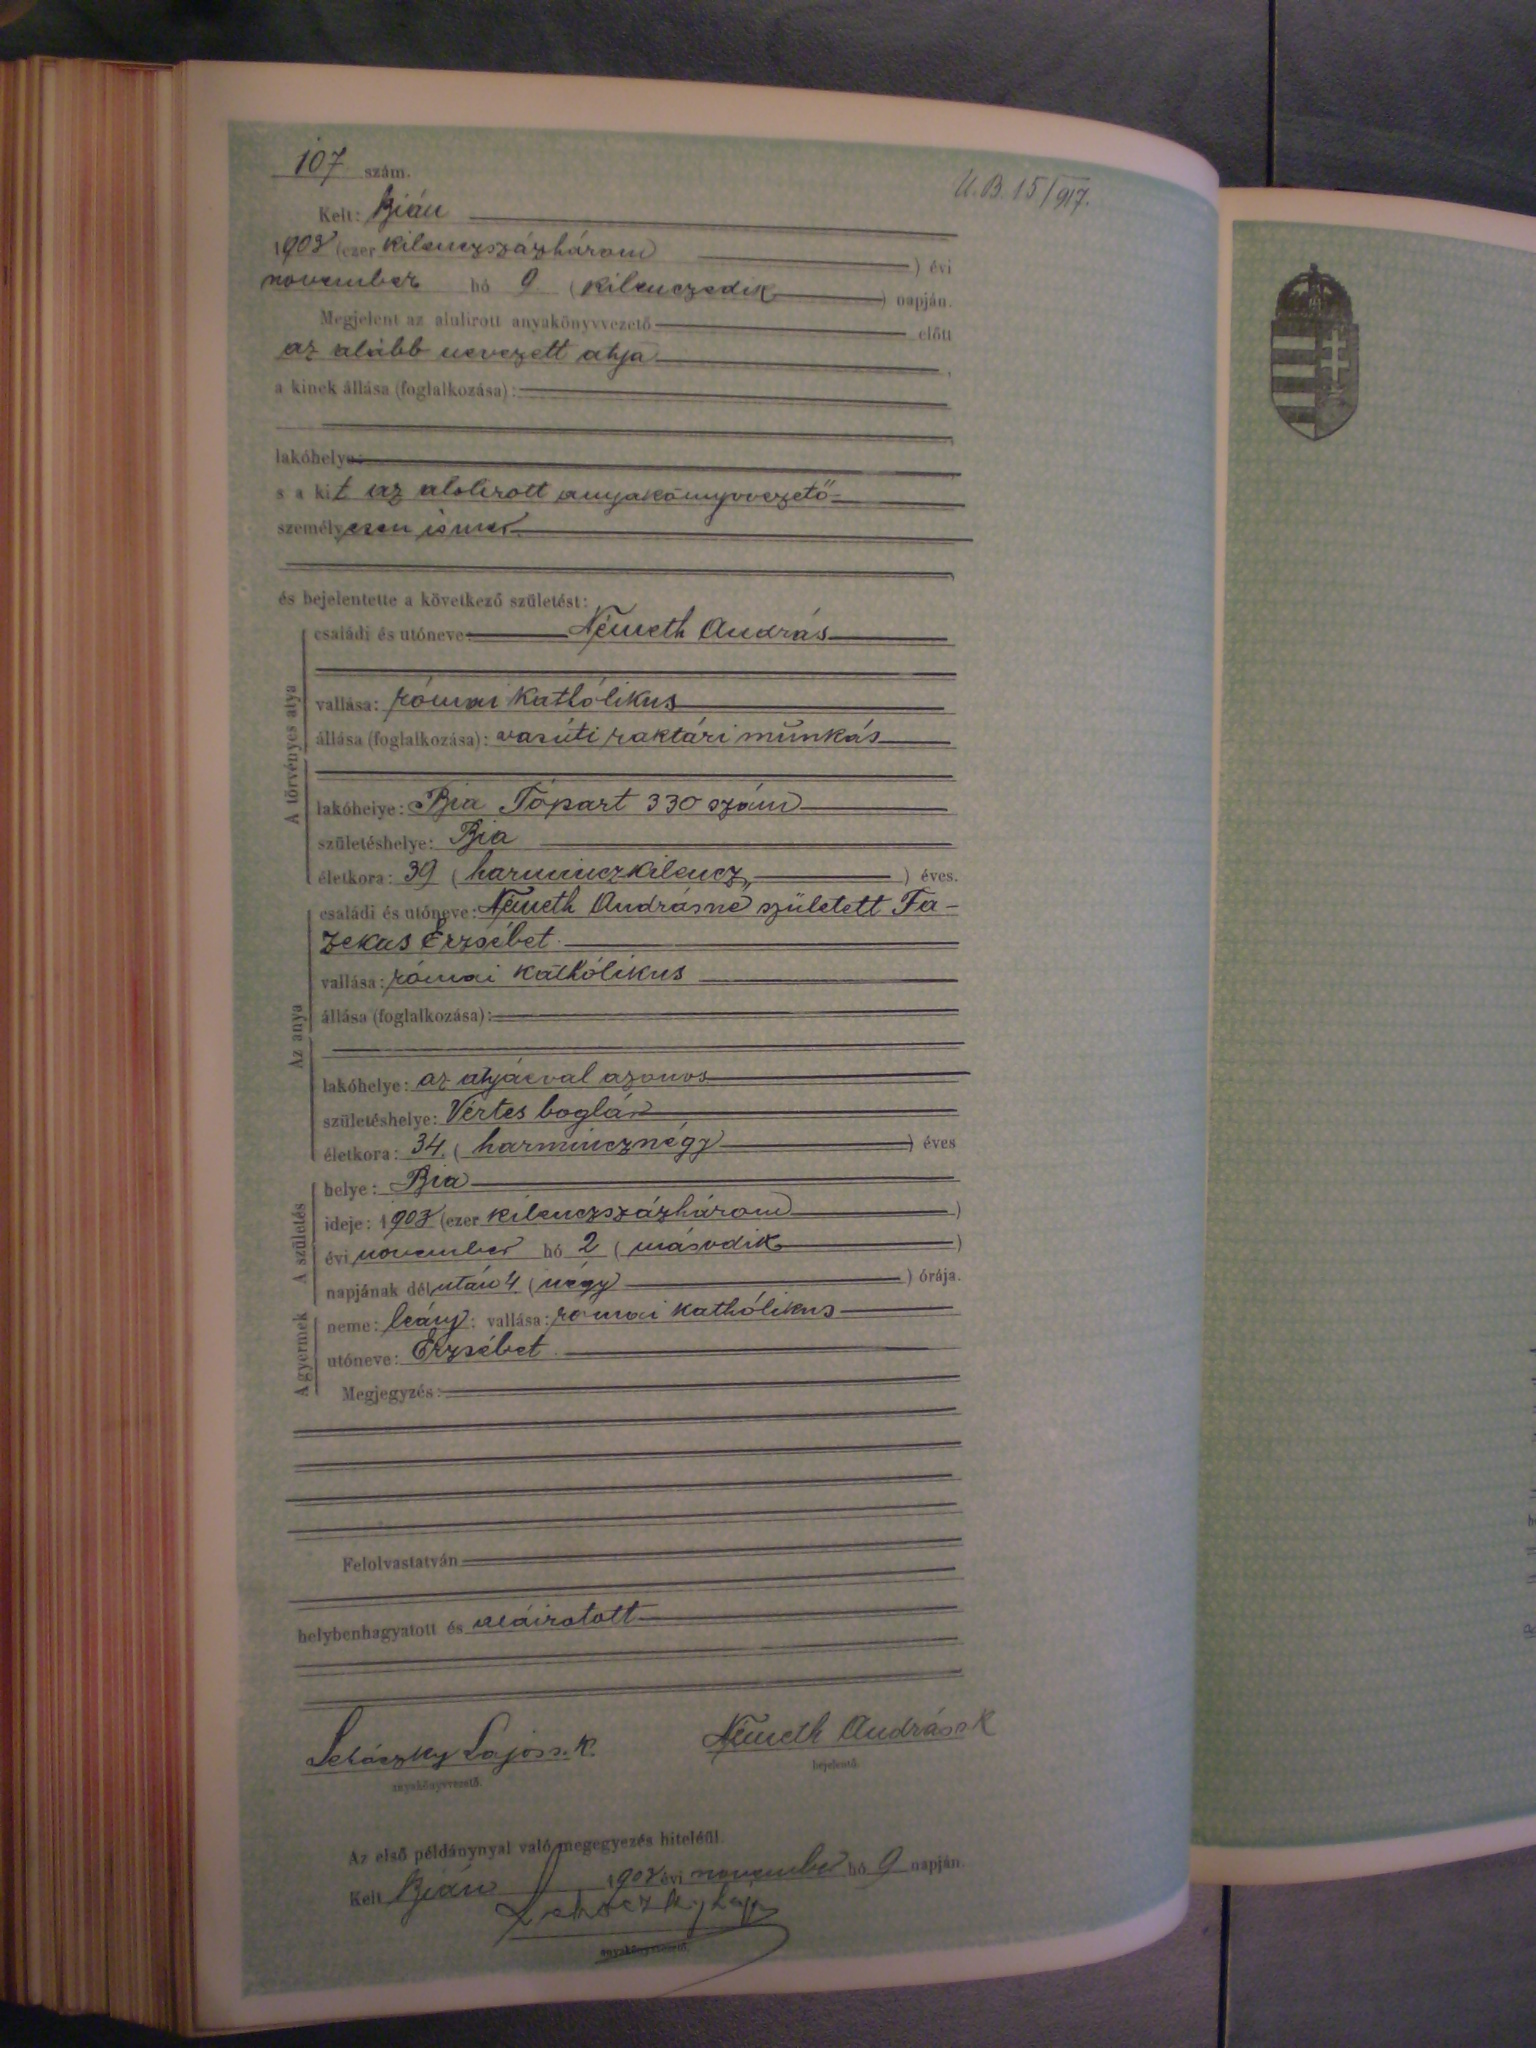 107 szám.
U.B. 15/917.
Kelt: Bián
1903 (ezer kilenczszázhárom ) évi
november hó 9. (kilenczedik ) napján.
Megjelent az alulirott anyakönyvvezető előtt
az alább nevezett atyja ,
a kinek állása (foglalkozása):
lakóhelye:
s a kit az alolirott anyakönyvvezető
személyesen ismer
és bejelentette a következő születést:
A törvényes atya
családi és utóneve: Németh András
vallása: római kathólikus
állása (foglalkozása): vasúti raktári munkás
lakóhelye: Bia Tópart 330 szám
születéshelye: Bia
életkora: 39 (harminczkilencz ) éves.
Az anya
családi és utóneve: Németh Andrásné született Fa-
zekas Erzsébet
vallása: római kathólikus
állása (foglalkozása):
lakóhelye: az atyáéval azonos
születéshelye: Vértes boglár
életkora: 34. (harmincznégy ) éves
A születés
helye: Bia
ideje: 1903 (ezer kilenczszázhárom )
évi november hó 2 (második )
napjának délután 4 (négy ) órája.
A gyermek
neme: leány; vallása: római kathólikus
utóneve: Erzsébet
Megjegyzés:
Felolvastatván
helybenhagyatott és aláiratott
Lajos s. k.
anyakönyvvezető.
Németh András s k
bejelentő.
Az első példánynyal való megegyezés hiteléül.
Kelt Bián 1903 évi november hó 9 napján.
anyakönyvvezető.